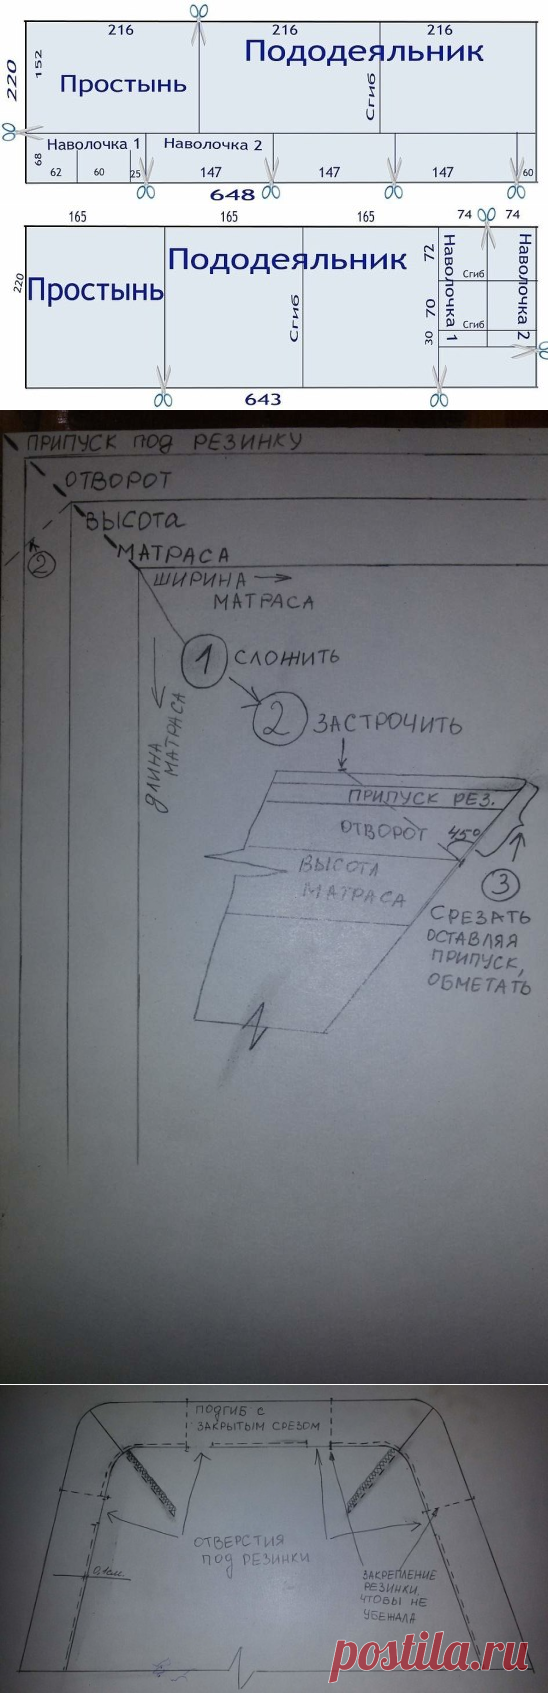 216 216 216
220
152
Простынь
Пододеяльник
Сгиб
Наволочка 1 Наволочка 2
68
62 60 25 147 147 147 60
648
165 165 165 74 74
220
Простынь
Пододеяльник
Сгиб
72
70
30
Наволочка 1
Сгиб
Сгиб
Наволочка 2
643
ПРИПУСК ПОД РЕЗИНКУ
ОТВОРОТ
ВЫСОТА
МАТРАСА
2
ШИРИНА
МАТРАСА
ДЛИНА
МАТРАСА
1 СЛОЖИТЬ
2 ЗАСТРОЧИТЬ
ПРИПУСК РЕЗ.
ОТВОРОТ 45°
ВЫСОТА
МАТРАСА
3
СРЕЗАТЬ
ОСТАВЛЯЯ
ПРИПУСК,
ОБМЕТАТЬ
ПОДГИБ С
ЗАКРЫТЫМ СРЕЗОМ
ОТВЕРСТИЯ
ПОД РЕЗИНКИ
0,1см
ЗАКРЕПЛЕНИЕ
РЕЗИНКИ,
ЧТОБЫ НЕ
УБЕЖАЛА
postila.ru